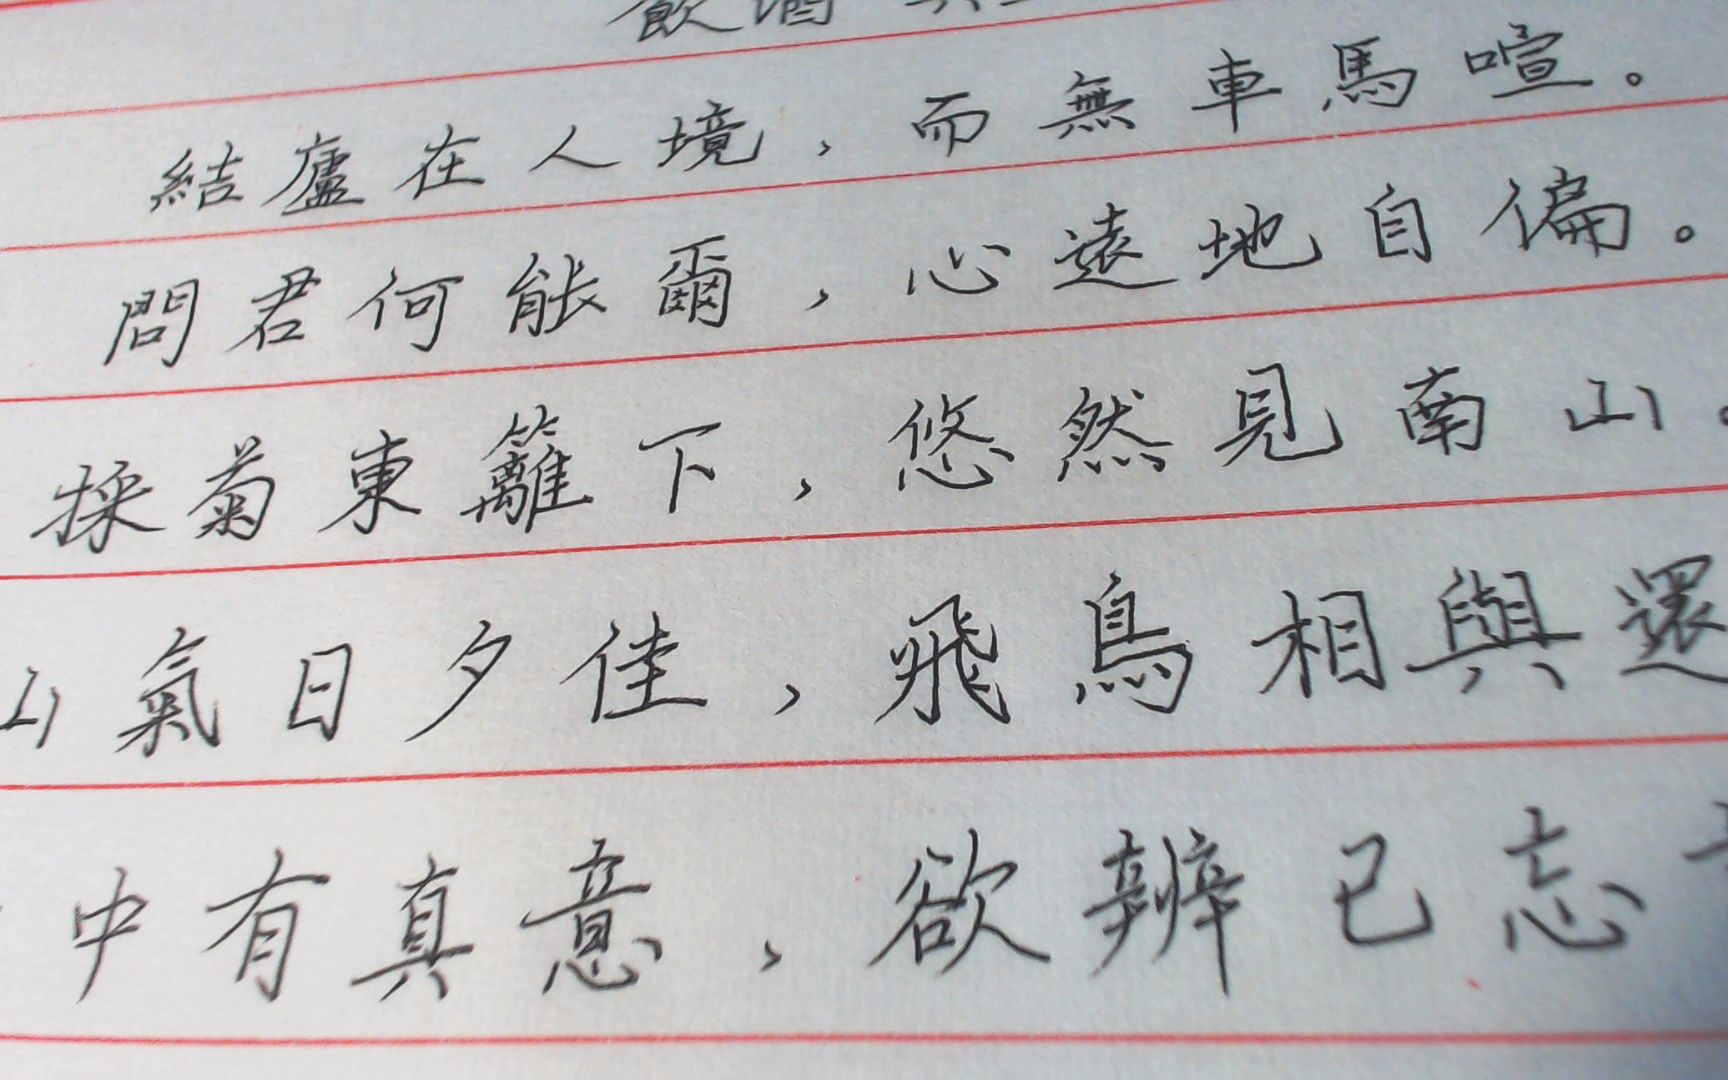 飲酒
結廬在人境，而無車馬喧。
問君何能爾，心遠地自偏。
採菊東籬下，悠然見南山。
山氣日夕佳，飛鳥相與還
中有真意，欲辨已忘